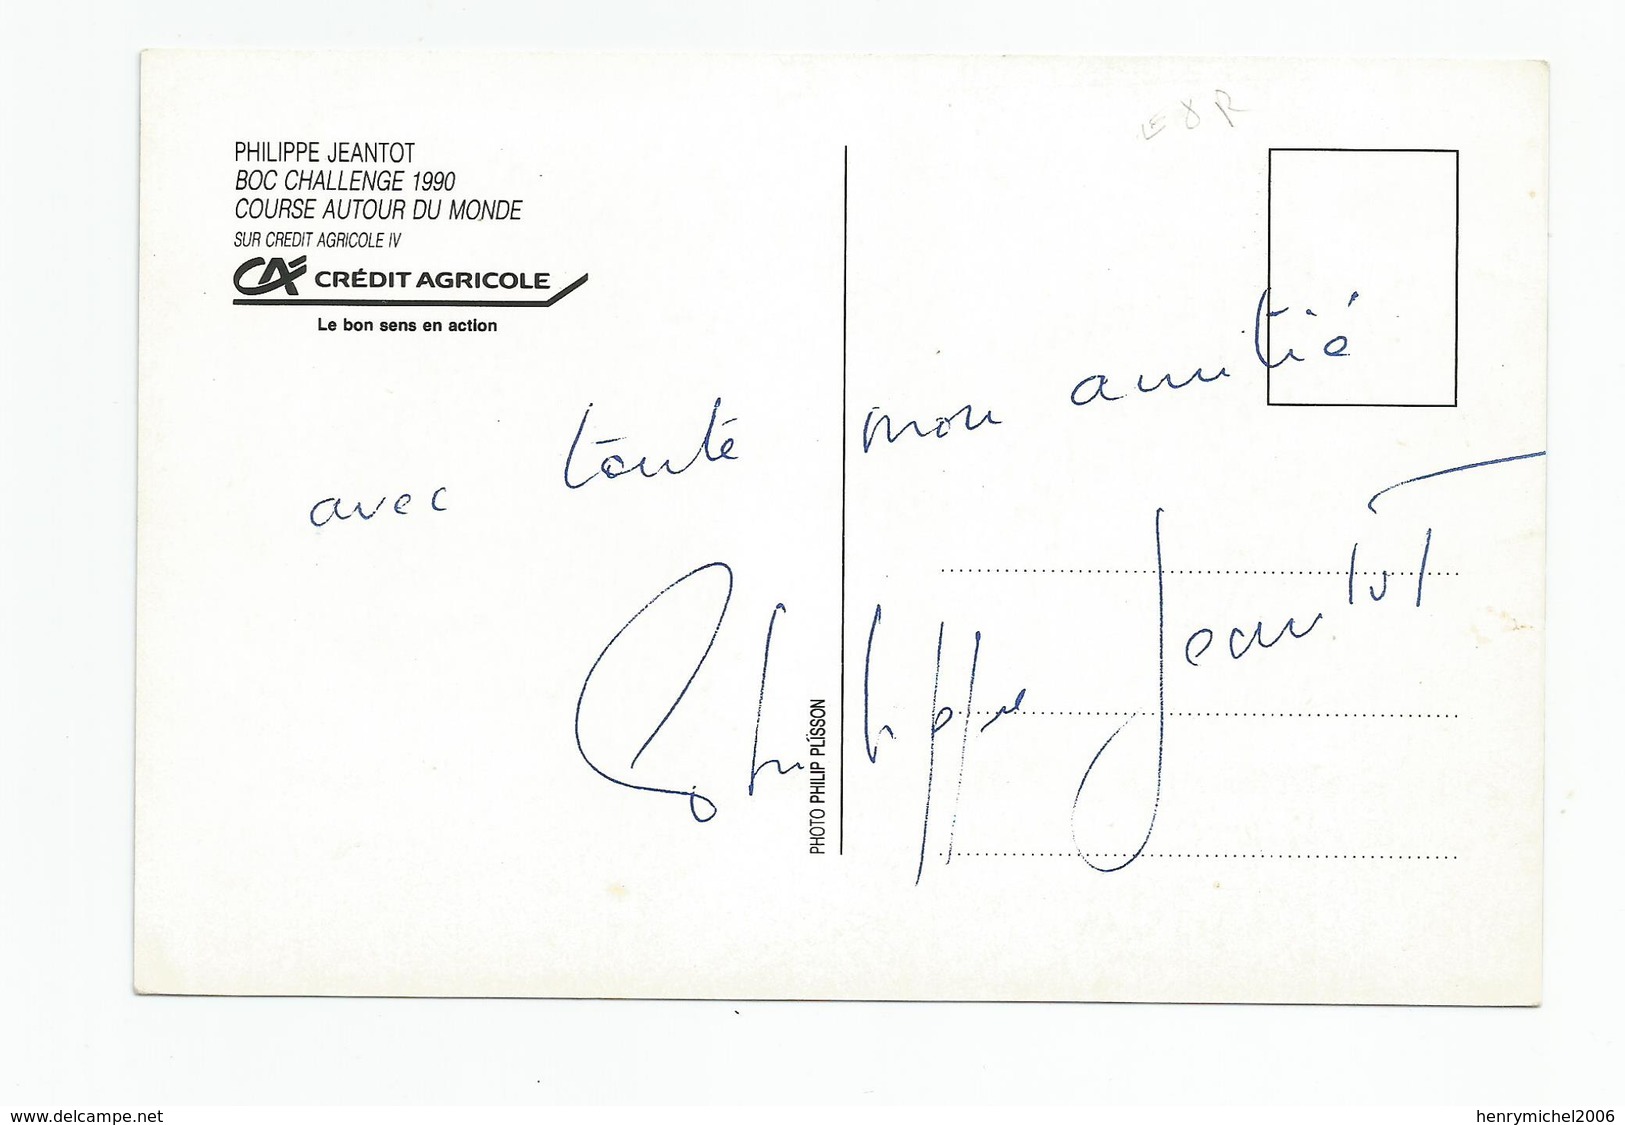 PHILIPPE JEANTOT
BOC CHALLENGE 1990
COURSE AUTOUR DU MONDE
SUR CREDIT AGRICOLE IV
CA CRÉDIT AGRICOLE
Le bon sens en action
avec toute mon amitié
Philippe Jeantot
PHOTO PHILIP PLISSON
www.delcampe.net
henrymichel2006